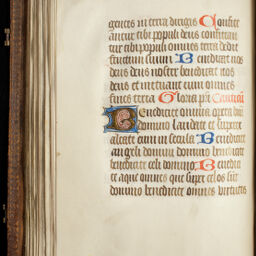 gentes in terra dirigis Confite
antur tibi populi deus confitean
tur tibi populi omnes terra dedit
fructum suum Benedicat nos
deus deus noster benedicat nos
deus et metuant eum omnes
fines terre Gloria pri
Benedicite omnia opera dni
domino laudate et superex
altate eum in secula Benedicite
angeli domini domino benedicite
benedicite celi domino Benedici
te aque omnes que super celos sūt
domino benedicite omnes virtutes